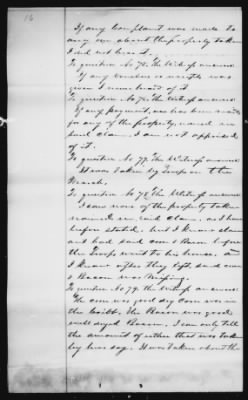 16
If any complaint was made to
any one about the property taken
I did not hear it.
To question No 75. the witness answers
If any voucher or receipt was
given I never heard of it
To question No 76. the witness answers
If any payment has ever been made
for any of the property, and in
said claim, I am not apprised
of it.
To question No 77. the witness answers
It was taken by troops on the
March,
To question No 78 the witness answers
I saw none of the property taken
named in said claim, as I have
before stated, but I know claim-
ant had said corn & Bacon before
the Troops went to his house, and
I know after they left, said corn
& Bacon was missing.
To question No 79. the witness answers
The corn was good dry corn was in
the Cribb. The Bacon was good
well dryed Bacon, I can only tell
the amount of either that was taken
by hear say. It was taken about the